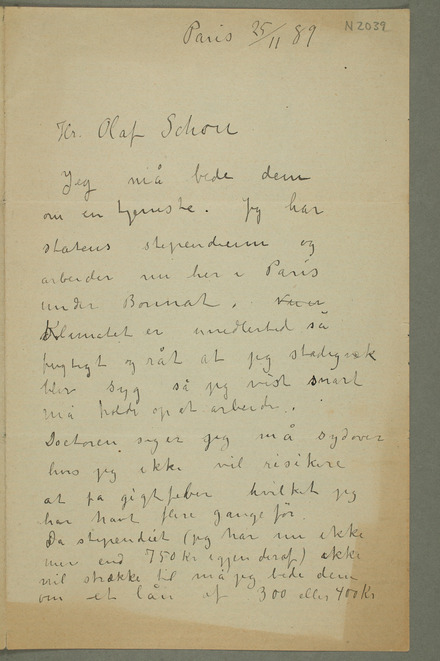 N 2039
Paris 25/11 89
Hr. Olaf Schou
Jeg må bede dem
om en tjeneste. Jeg har
statens stipendium og
arbeider nu her i Paris
under Bonnat.
Klimatet er imidlertid så
fugtigt og råt at jeg stadigvæk
blir syg så jeg vist snart
må holde op at arbeide.
Doctoren siger jeg må sydover
hvis jeg ikke vil risikere
at få gigtfeber hvilket jeg
har havt flere gange før.
Da stipendiet (jeg har nu ikke
mer end 750 Kr igjen deraf) ikke
vil strække til må jeg bede dem
om et lån af 300 eller 400 Kr